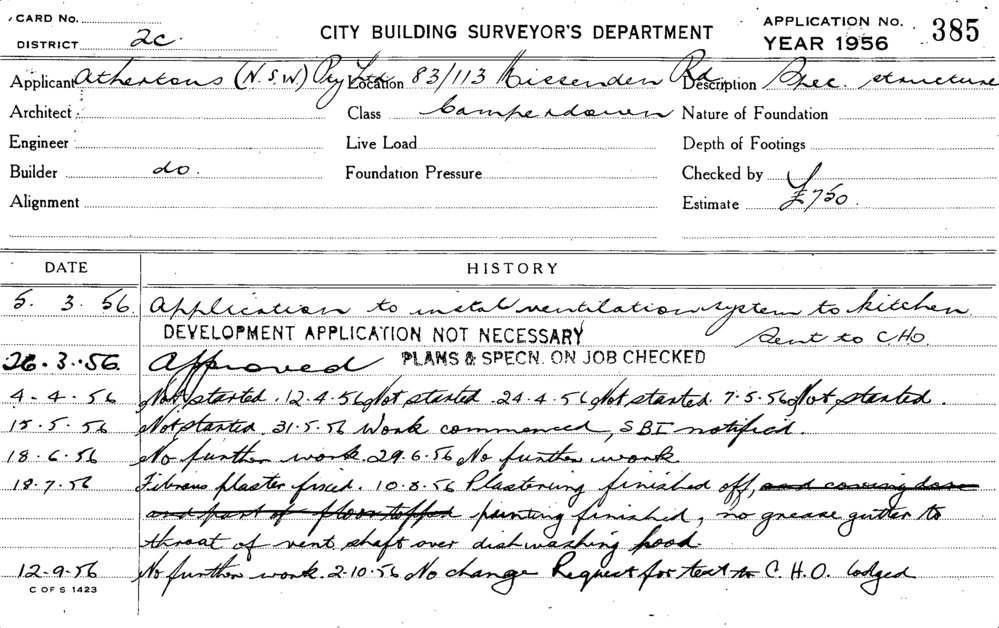 CARD No.
DISTRICT 2c.
CITY BUILDING SURVEYOR'S DEPARTMENT
APPLICATION No. 385
YEAR 1956
Applicant Athertons (N.S.W) Pty Ltd Location 83/113 Missenden Rd Description Spec. structure
Architect Class Camperdown Nature of Foundation
Engineer Live Load Depth of Footings
Builder do. Foundation Pressure Checked by
Alignment Estimate £750.
DATE HISTORY
5. 3. 56. Application to instal ventilation system to kitchen
DEVELOPMENT APPLICATION NOT NECESSARY Sent to CHO.
26.3.56. Approved PLANS & SPECN. ON JOB CHECKED
4-4-56 Not started. 12.4.56 Not started. 24.4.56 Not started 7.5.56 Not started.
15.5.56 Not started. 31.5.56 Work commenced, SBI notified.
18.6.56 No further work 29.6.56 No further work
18.7.56 Fibrous plaster fixed. 10.8.56 Plastering finished off, and coving done
and part of floor topped painting finished, no grease gutter to
throat of vent shaft over dishwashing hood.
12.9.56 No further work. 2.10.56 No change Request for test to C.H.O. lodged
C OF S 1423